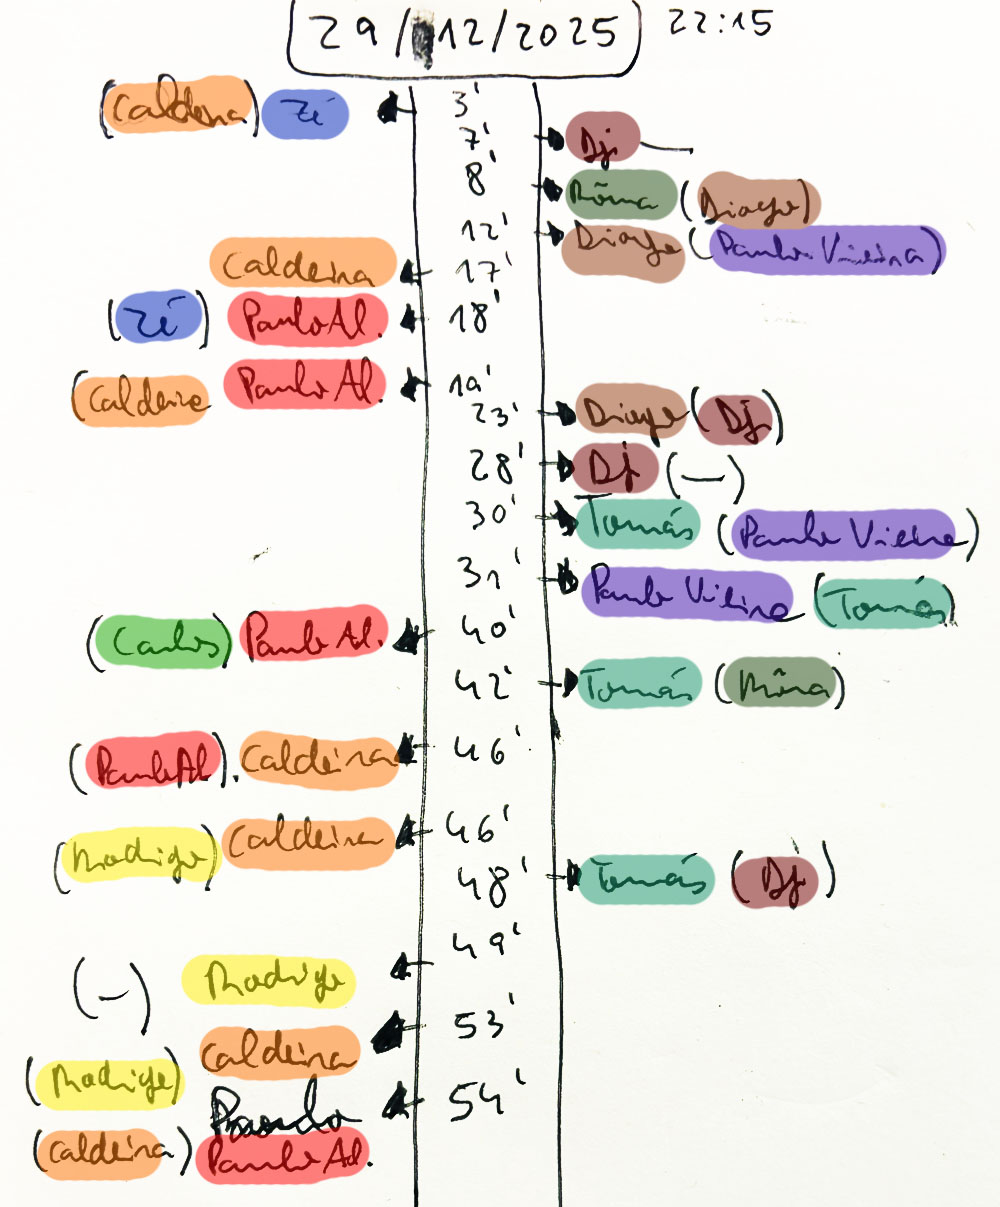 29/12/2025 22:15
(Caldeira) Zé 3'
7' Dj —
8' Rôma (Diogje)
12' Diogje (Paulo Vieira)
Caldeira 17'
(Zé) Paulo Al. 18'
(Caldeira Paulo Al. 19'
23' Diogje (Dj)
28' Dj (—)
30' Tomás (Paulo Vieira)
31' Paulo Vieira (Tomás)
(Carlos) Paulo Al. 40'
42' Tomás (Rôma)
(Paulo Al). Caldeira 46'
(Rodrigo) Caldeira 46'
48' Tomás (Dj)
(—) Rodrigo 49'
(Rodrigo) Caldeira 53'
54'
(Caldeira) Paulo Al.